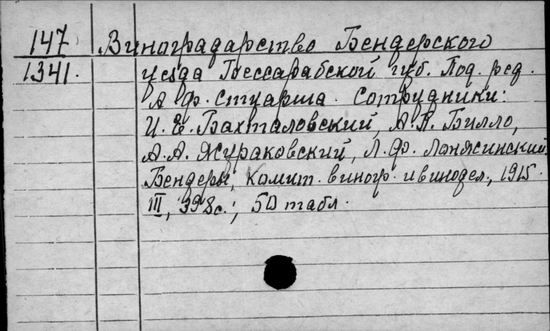 147 Виноградарство Бендерского
1341. уезда Бессарабской губ. Под. ред.
А. Ф. Стуарта. Сотрудники:
И. Е. Бахталовский, А. Р. Билло,
А. А. Жураковский, Л. Ф. Лонясинский
Бендеры, Комит. виногр. и винодел, 1915.
III, 398 с.; 50 табл.